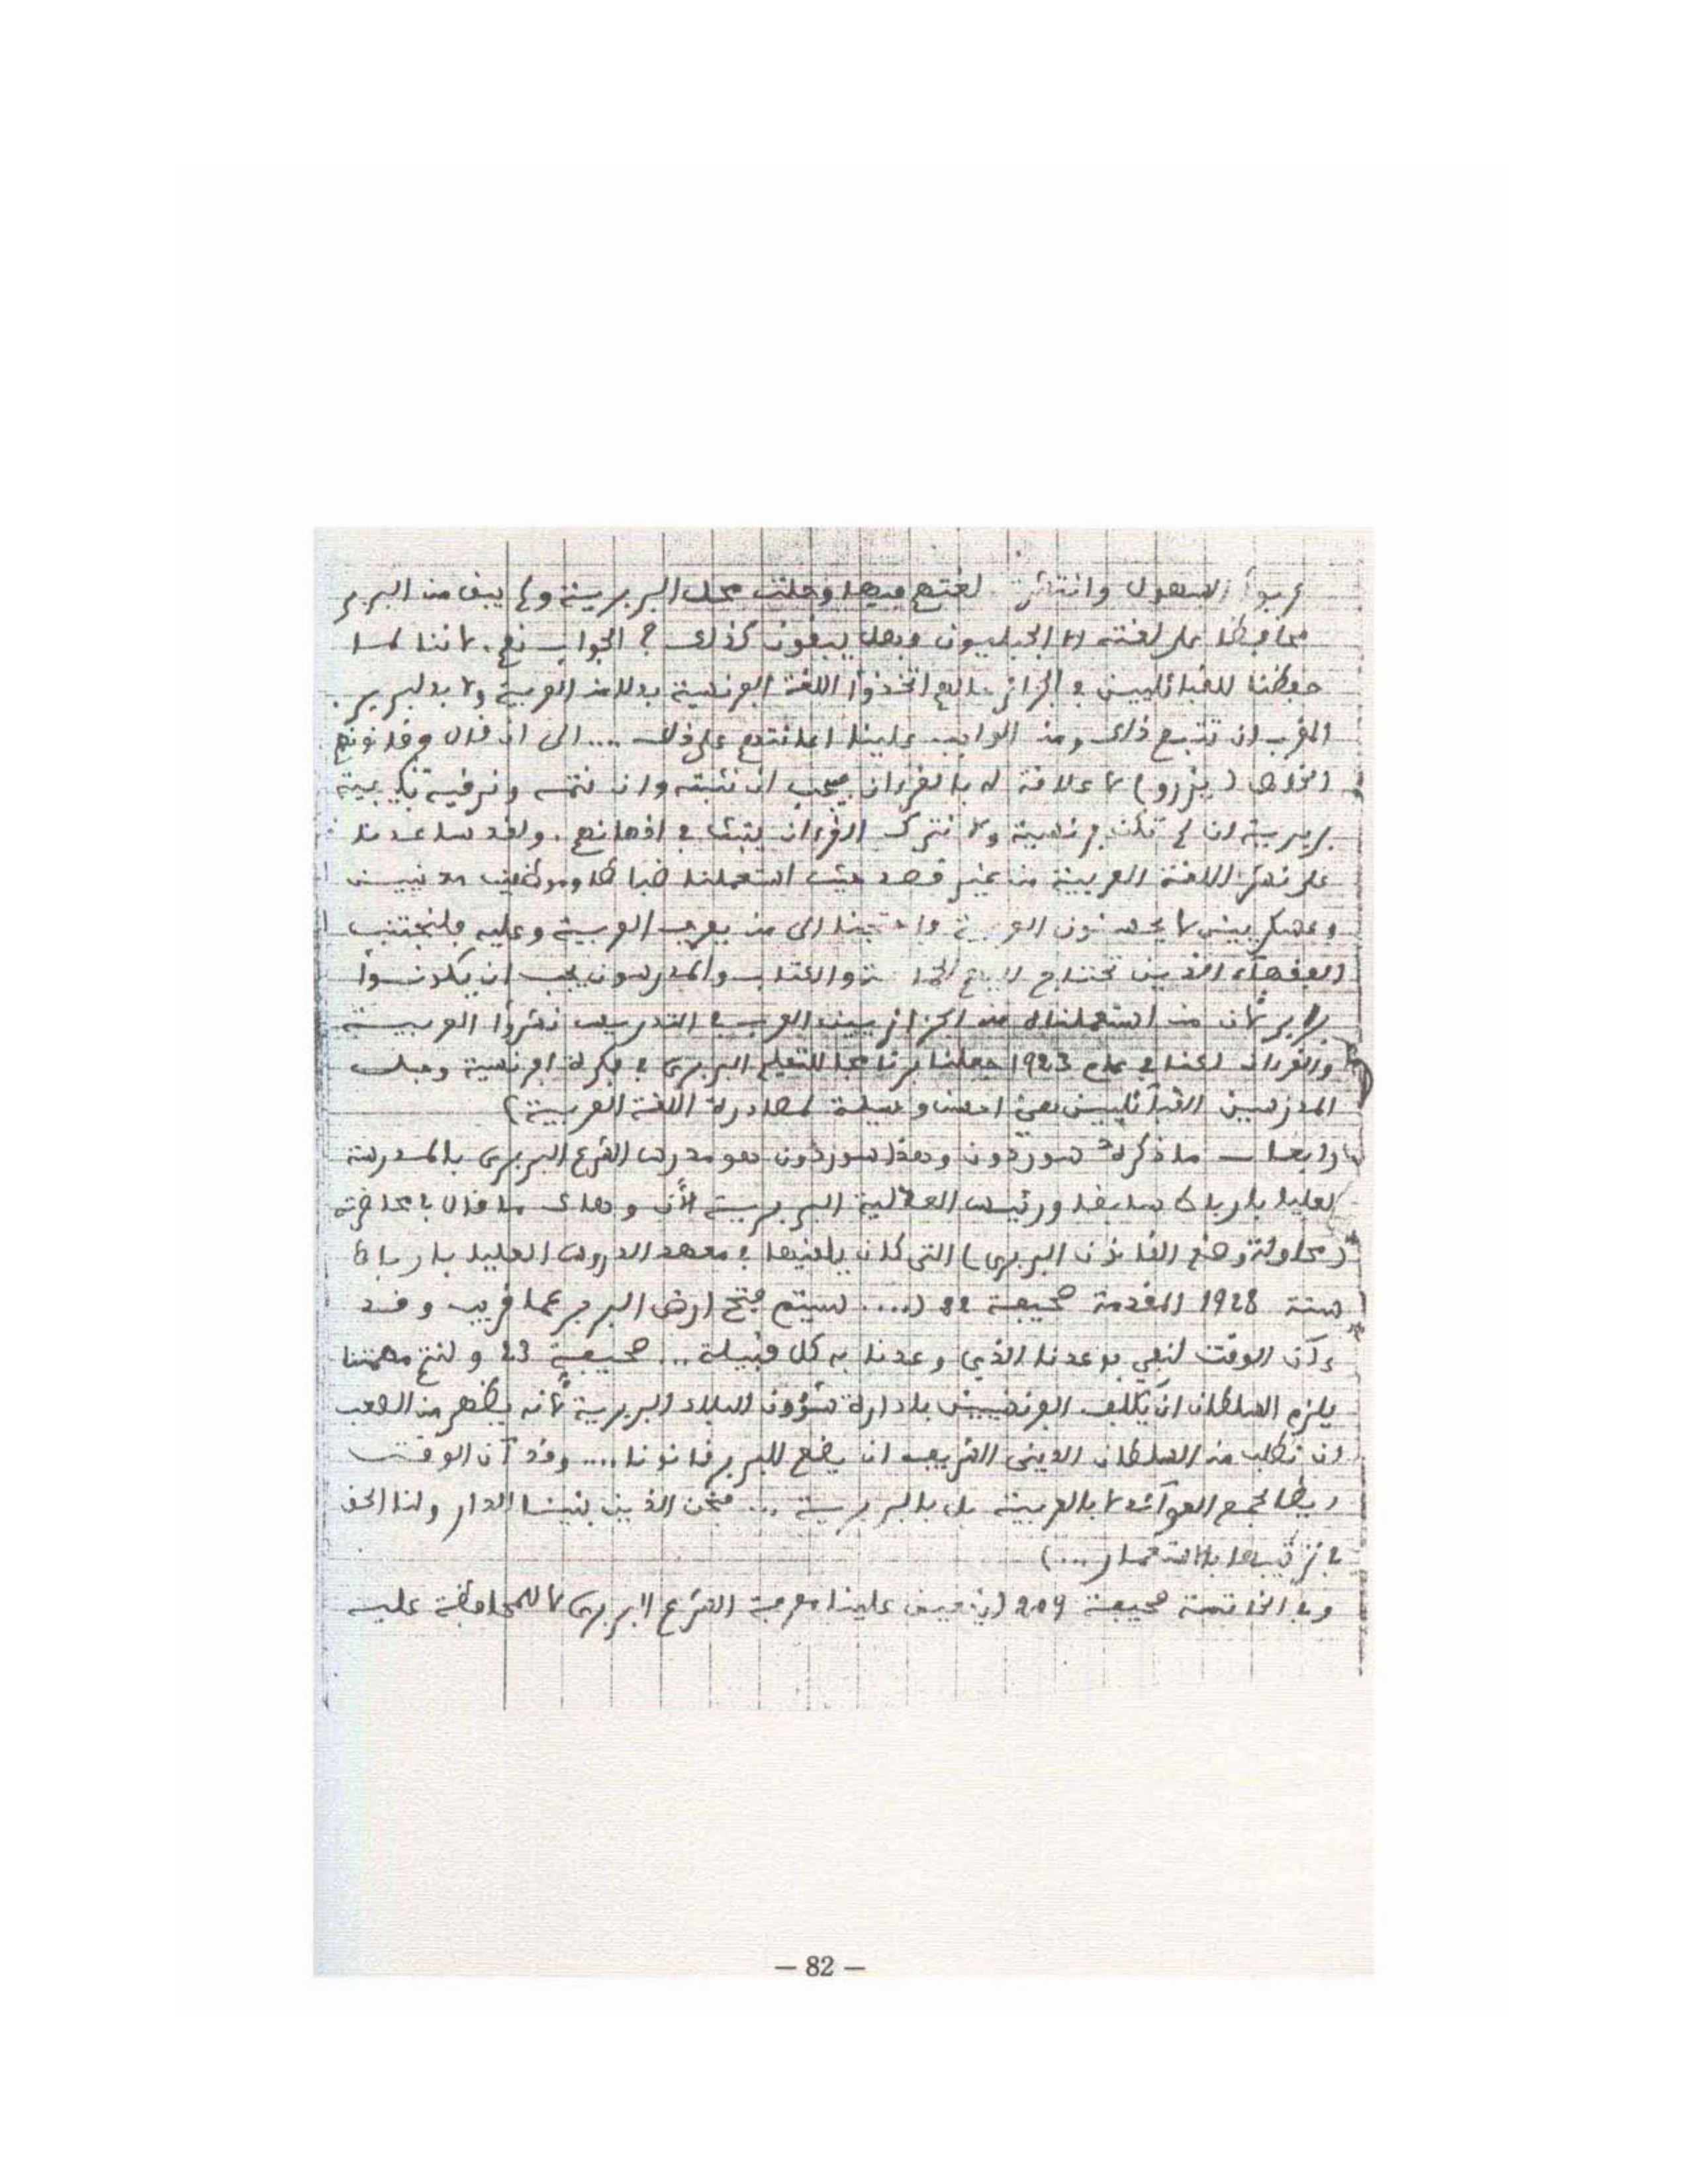 عربوا السهول وانتشرت لغتهم فيها وحلت محل البربرية ولم يبق من البربر
محافظا على لغته الا الجبليون وهل يبقون كذلك ؟ الجواب نعم. لاننا لما
حفظنا للقبائليين في الجزائر اتخذوا اللغة الفرنسية بدلا من العربية ولا بد لبربر
المغرب ان تتبع ذلك ومن الواجب علينا اعانتهم على ذلك .... الى ان قال وقانونهم
الخاص (يزرو) لا علاقة له بالقرءان يجب ان نثبته وان نتمه ونرقيه بكيفية
بربرية ان لم تكن فرنسية ولا نترك القرءان يثبت في اذهانهم. ولقد ساعدنا
على نشر اللغة العربية من غير قصد حيث استعملنا ضباطا وموظفين مدنيين
وعسكريين لا يحسنون العربية واحتجنا الى من يعرف العربية وعليه فلنجتنب
الفقهاء الذين تحتاج اليهم والكتاب والمدرسون يجب ان يكونوا
برابر لأن من استعملناه من الجزائريين العرب في التدريس نشروا العربية
والقرءان لكننا في عام 1923 جعلنا برنامجا للتعليم البربري في فكرة افرنسية وجلب
المدرسين القبائليين هي احسن وسيلة لمصادرة اللغة العربية)
رابعا ــ ما ذكره سوردون وهذا سوردون هو مدرس الشرع البربري بالمدرسة
العليا بالرباط سابقا ورئيس العدلية البربرية الأن وهاك ما قال بمحاضرته
(محاولة وضع القانون البربري) التي كان يلقيها في معهد الدروس العليا بالرباط
سنة 1928 المقدمة صحيفة (.... سيتم فتح ارض البربر عما قريب وقد
ءان الوقت لنفي بوعدنا الذي وعدنا به كل قبيلة... صحيفة 23 ولنتم مهمتنا
يلزم السلطان ان يكلف الفرنسيين بادارة شؤون البلاد البربرية لأنه يظهر من الصعب
ان نطلب من السلطان الديني الشريف ان يضع للبربر قانونا.... وقد آن الوقت
ايضا لجمع العوائد لا بالعربية بل بالبربرية ... فنحن الذين بنينا الدار ولنا الحق
في ترتيبها بالاستعمار...)
وفي الخاتمة صحيفة 209 (يتعين علينا معرفة الشرع البربري لا للمحافظة عليه
– 82 –